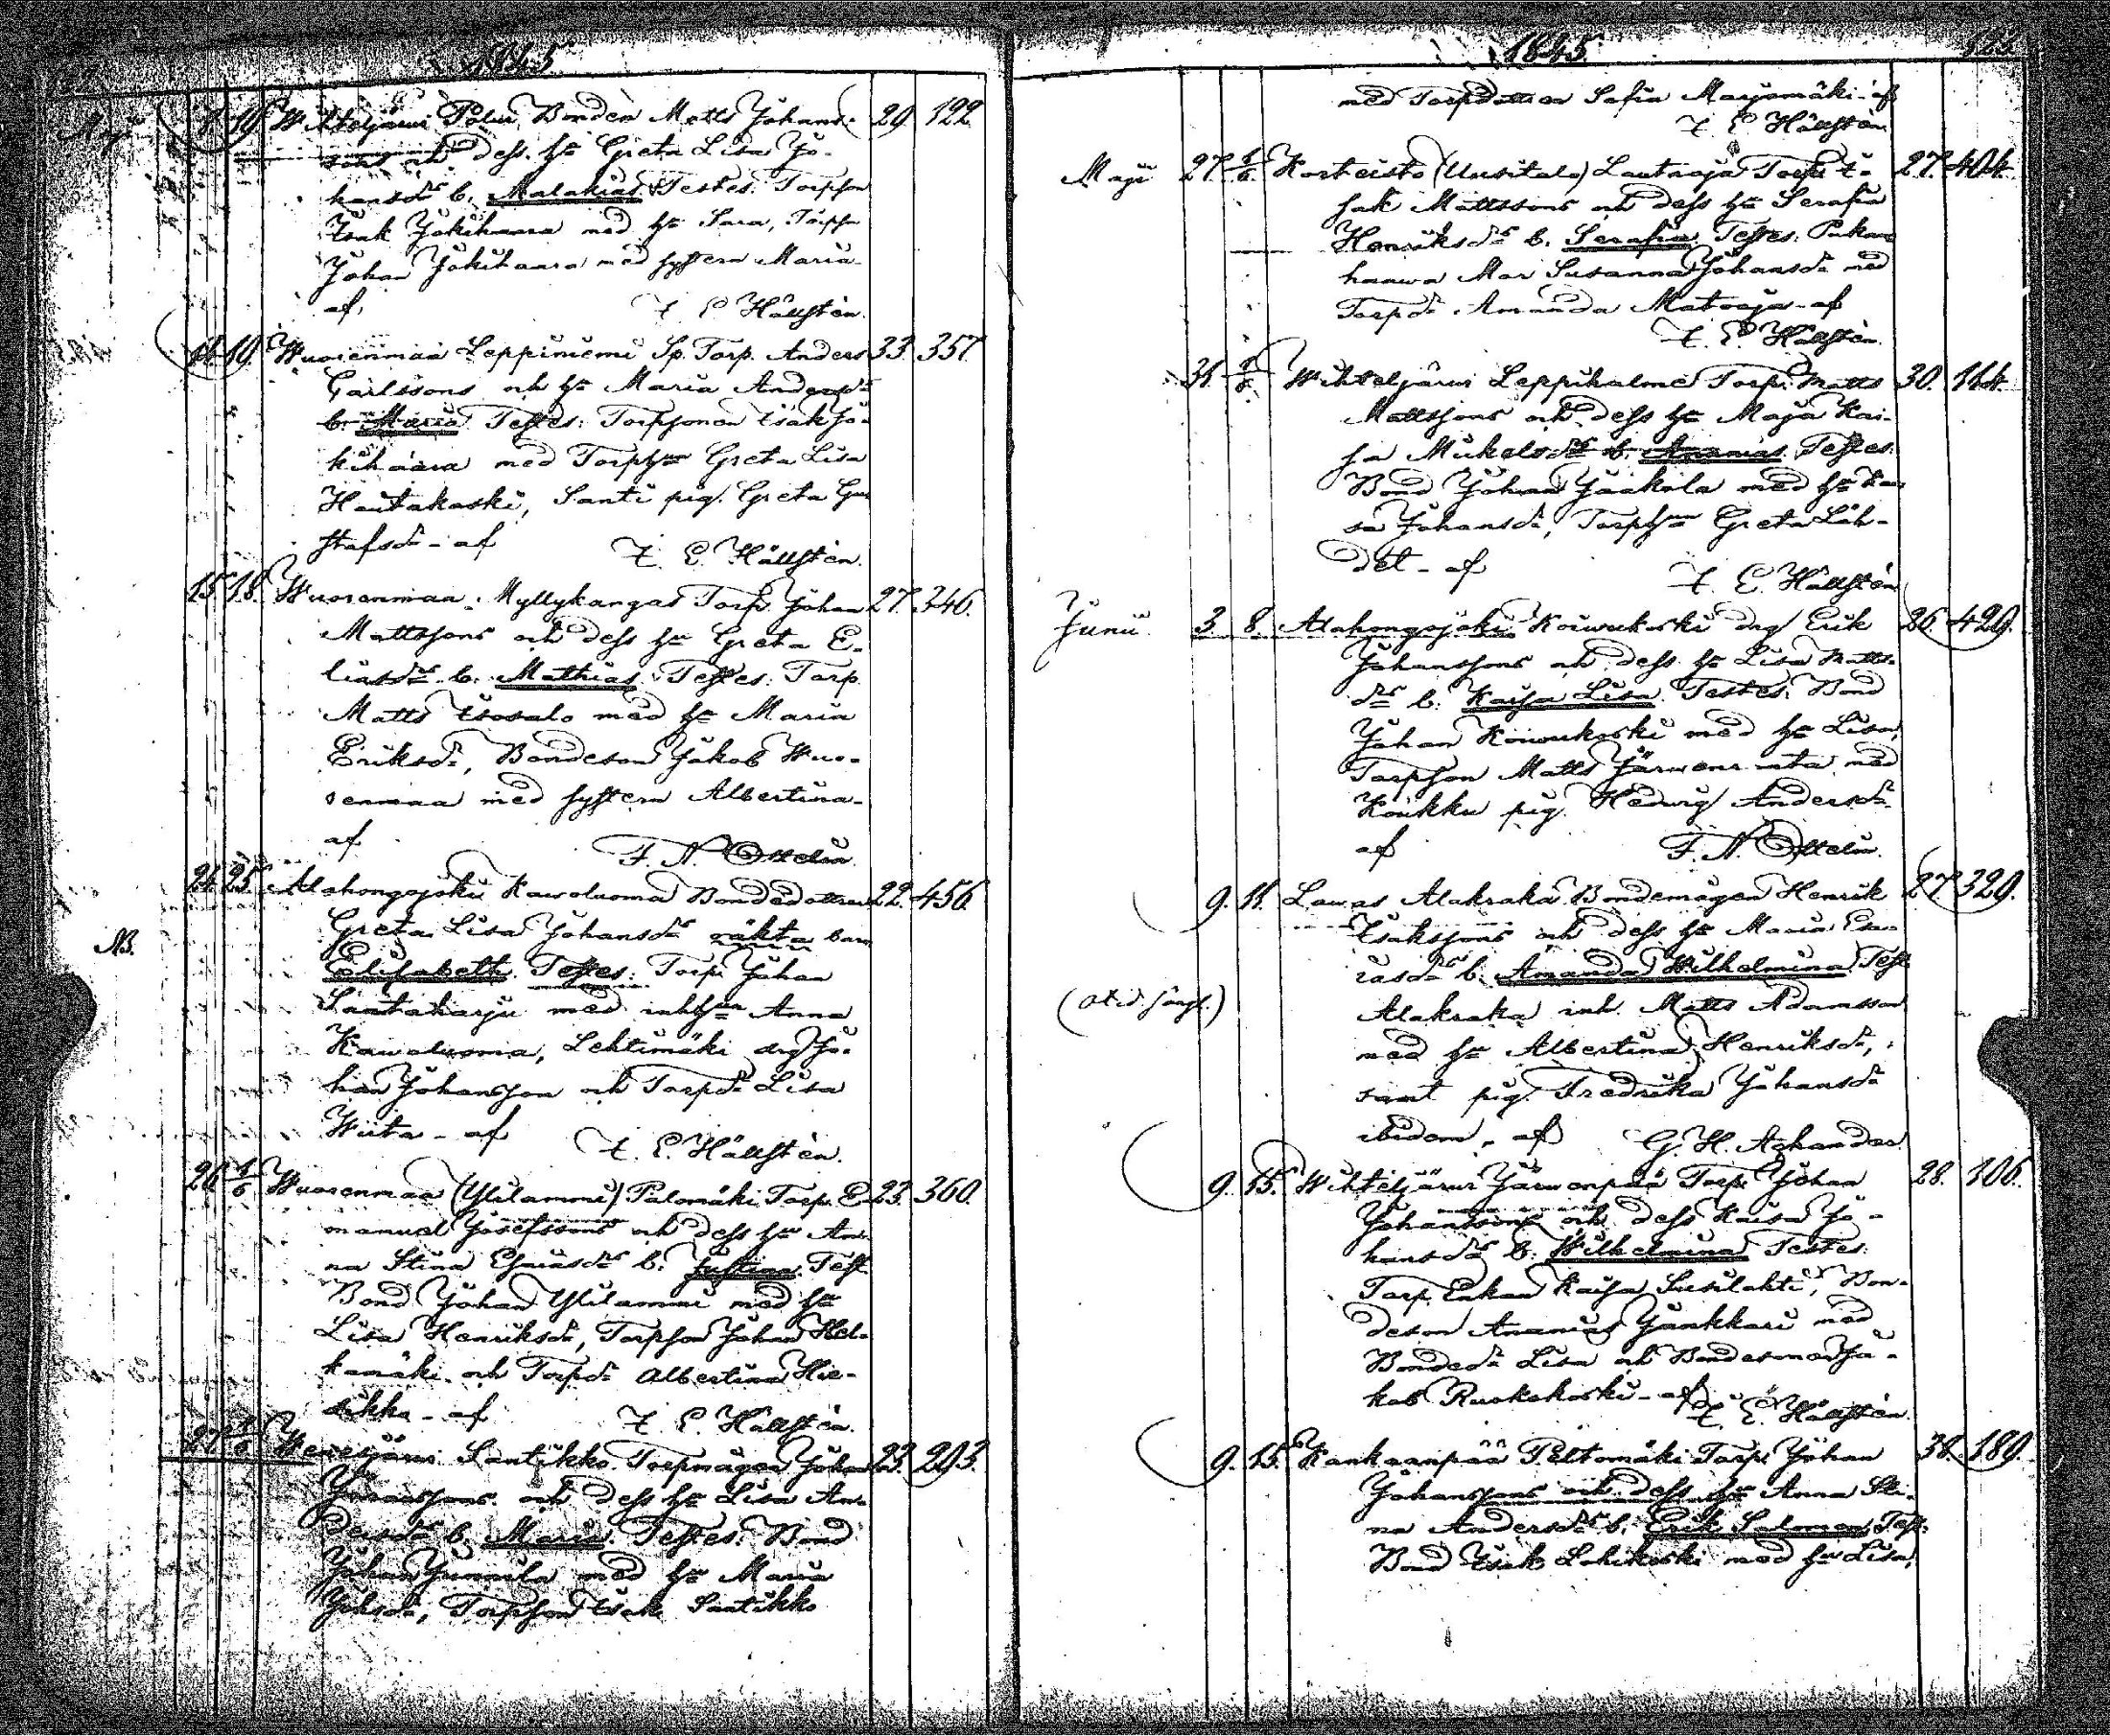 1845
Maji 7. 10. Wihteljärwi Poln Bonden Matts Johans- 29. 122.
sons och dess hu Greta Lisa Jo-
hansdr b. Malakias Testes: Torpson
Isak Jokihaara med hu Sara, Torpson
Johan Jokihaara med systern Maria
af Z. E. Hällstén.
11. 10. Wuorenmaa Leppiniemi Sp. Torp. Anders 33. 357.
Carlssons och hu Maria Andersdr
b. Maria Testes: Torpsonen Isak Jo-
kihaara med Torphun Greta Lisa
Hautakoski, Santi pig. Greta Gu
stafsdr - af Z. E. Hällstén.
15. 18. Wuorenmaa Myllykangas Torp. Johan 27. 346.
Mattssons och dess hu Greta E-
liasdr b. Mathias Testes: Torp.
Matts Isosalo med hu Maria
Eriksdr, Bondeson Jakob Wuo-
renmaa med systern Albertina
af F. N. Ottelin.
24. 25. Alahongojoki Kawoluoma Bondedottren 22. 456.
Greta Lisa Johansdrs oäkta barn
NB.
Elisabeth. Testes: Torp. Johan
Santaharju med inhhun Anna
Kawoluoma, Lehtimäki drg Jo-
han Johansson och Torpdr Lisa
Wiita - af Z. E. Hällstén.
26. 1/6 Wuorenmaa (Ylilammi) Palomäki Torp. E- 23. 360.
manuel Josefssons och dess hu An-
na Stina Esaiasdr b. Justina. Test.
Bond Johan Ylilammi med hu
Lisa Henriksdr, Torpson Johan Hel-
kamäki och Torpdr Albertina Hie-
sikko - af Z. E. Hällstén.
27. 1/6 Wenesjärwi Santikko Torpmågen Johan 23. 293.
och dess hu Lisa An-
dersdr b. Maria. Testes: Bond
Johan Junnila med hu Maria
Johsdr, Torpson Isak Santikko
1845. 123.
med Torpdottren Sofia Marjomäki - af
Z. E. Hällstén.
Maji 27. 1/6 Korteisto (Uusitalo) Lautaoja Torp. I- 27. 404.
sak Mattssons och dess hu Serafia
Henriksdr b. Serafia Testes: Pukan
haawa Mor Susanna Johansdr med
Torpdr Amanda Matooja - af
Z. E. Hällstén.
31. 1/6 Wihteljärwi Leppihalme Torp. Matts 30. 114.
Mattssons och dess hu Maja Kai-
sa Mickelsdr b. Ananias. Testes:
Bond Johan Jaakola med hu
sa Johansdr, Torphun Greta Läh-
det - af Z. E. Hällstén.
Junii 3. 8. Alahongojoki Koiwukoski drg Erik 26. 429.
Johanssons och dess hu Lisa Matts-
dr b. Kaisa Lisa. Testes: Bond
Johan Koiwukoski med hu Lisa,
Torpson Matts Järwenranta med
Koukku pig. Hedwig Andersdr
af F. N. Ottelin.
9. 11. Lawas Alakraka Bondemågen Henrik 27. 329.
Isakssons och dess hu Maria Esa-
iasdr b. Amanda Wilhelmina Test.
Alakraka inh. Matts Adamsson
med hu Albertina Henriksdr,
samt pig. Fredrika Johansdr
ibidem, af G. H. Achander.
9. 15. Wihteljärwi Järwenpää Torp. Johan 28. 106.
Johanssons och dess Kaisa Jo-
hansdr b. Wilhelmina Testes:
Torp. Enkan Kaisa Susilahti, Bon-
deson Ananias Jankkari med
Bondedr Lisa och Bondesonen Ja-
kob Ruokokoski - af Z. E. Hällstén.
9. 15. Kankaanpää Peltomäki Torp. Johan 38. 189.
Johanssons och dess hu Anna Sti-
na Andersdr b. Erik Salomon Test:
Bond Isak Lohikoski med hu Lisa,